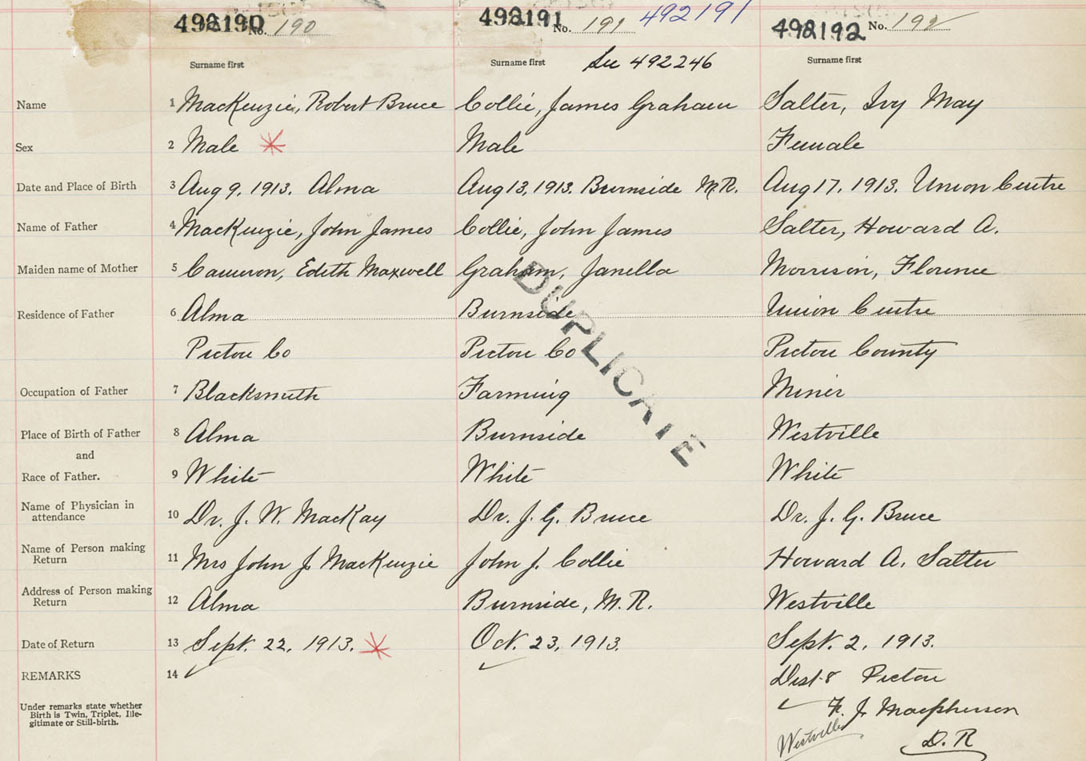 492190 No. 190 492191 No. 191 492191 492192 No. 192
Surname first Surname first See 492246 Surname first
Name 1 MacKenzie, Robert Bruce Collie, James Graham Salter, Ivy May
Sex 2 Male Male Female
Date and Place of Birth 3 Aug 9, 1913. Alma Aug 13, 1913. Burnside M.R. Aug 17, 1913. Union Centre
Name of Father 4 MacKenzie, John James Collie, John James Salter, Howard A.
Maiden name of Mother 5 Cameron, Edith Maxwell Graham, Janella Morrison, Florence
Residence of Father 6 Alma Burnside Union Centre
Pictou Co Pictou Co Pictou County
DUPLICATE
Occupation of Father 7 Blacksmith Farming Miner
Place of Birth of Father 8 Alma Burnside Westville
and
Race of Father. 9 White White White
Name of Physician in
attendance 10 Dr. J. W. MacKay Dr. J. G. Bruce Dr. J. G. Bruce
Name of Person making
Return 11 Mrs John J MacKenzie John J. Collie Howard A. Salter
Address of Person making
Return 12 Alma Burnside, M.R. Westville
Date of Return 13 Sept. 22, 1913. Oct. 23, 1913. Sept. 2, 1913.
REMARKS 14 Dist 8 Pictou
Under remarks state whether
Birth is Twin, Triplet, Ille-
gitimate or Still-birth.
J. Macpherson
Westville D.R